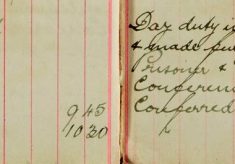 9 45
10 30
Day duty i
& made
Prisoner &
Conferen
Conferred